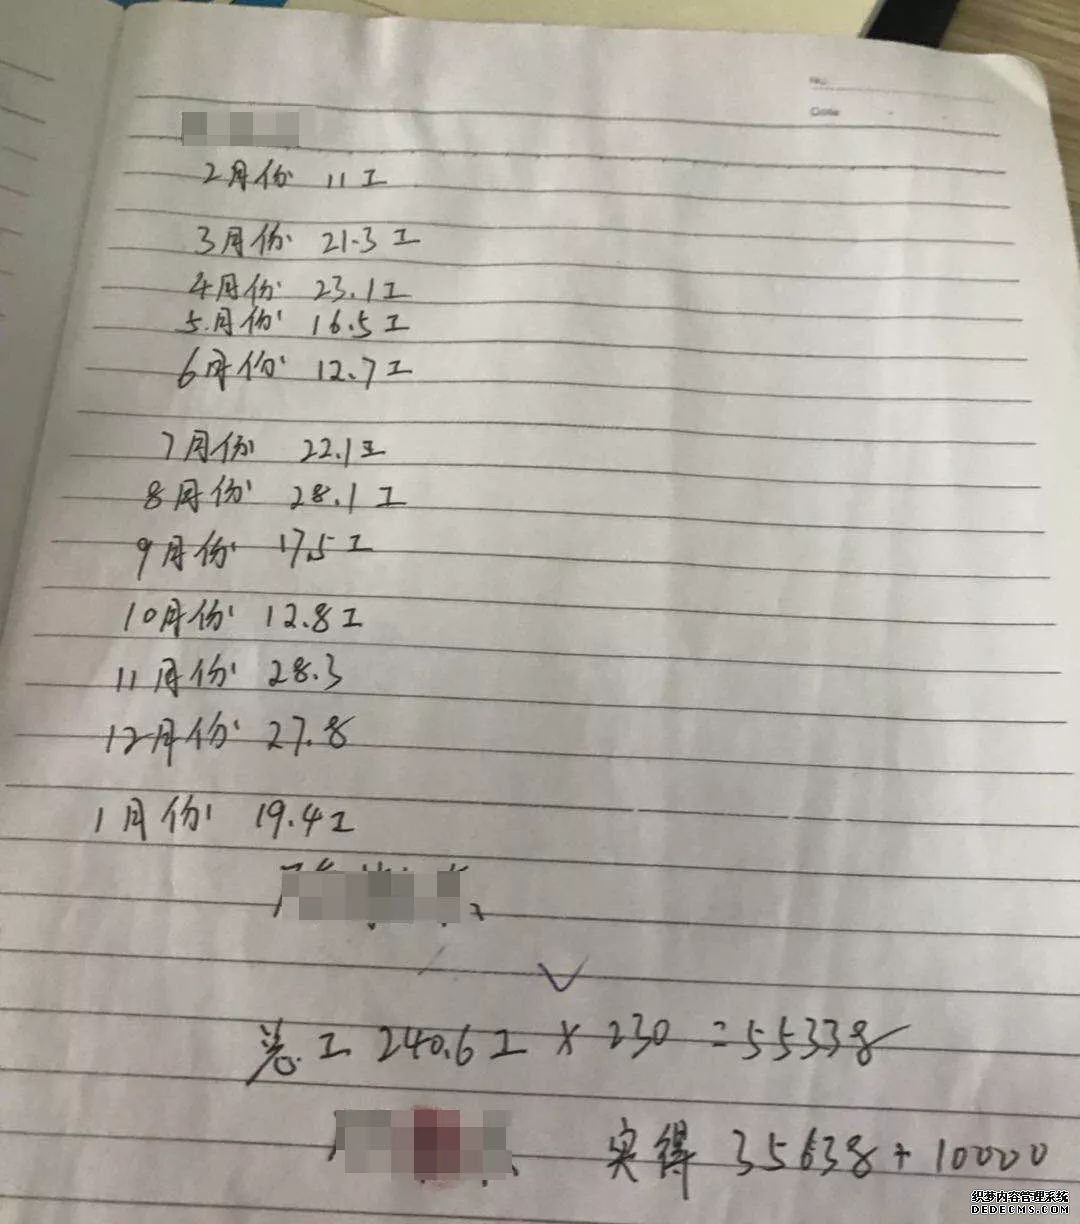 No.
Date
2月份 11工
3月份 21.3工
4月份 23.1工
5月份 16.5工
6月份 12.7工
7月份 22.1工
8月份 28.1工
9月份 17.5工
10月份 12.8工
11月份 28.3
12月份 27.8
1月份 19.4工
总工 240.6工 × 230 = 55338
实得 35638 + 10000
织梦内容管理系统
DEDECMS.COM